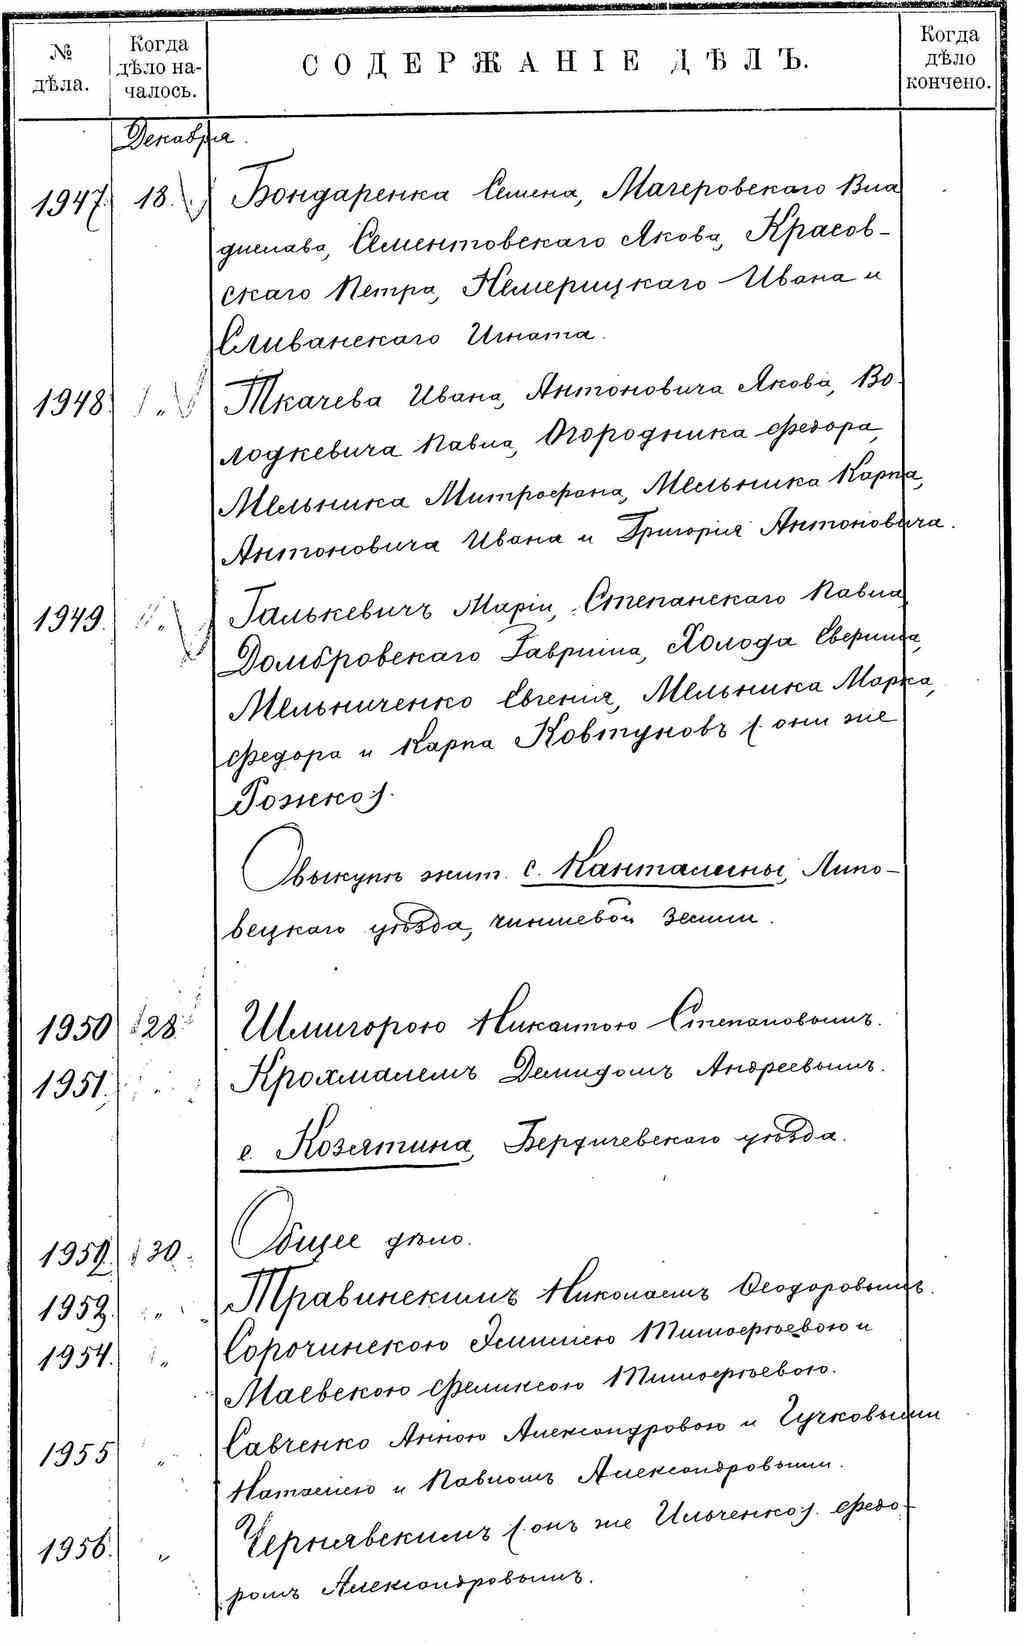 № дѣла. Когда дѣло началось. СОДЕРЖАНІЕ ДѢЛЪ. Когда дѣло кончено.
Декабря.
1947. 18. Бондаренка Семена, Магеровскаго Вла
дислава, Сементовскаго Якова, Красов-
скаго Петра, Немерицкаго Ивана и
Сливанскаго Игната.
1948. „ Ткачева Ивана, Антоновича Якова, Во-
лодкевича Павла, Огородника Федора,
Мельника Митрофана, Мельника Карпа,
Антоновича Ивана и Григорія Антоновича.
1949. „ Галькевичъ Маріи, Степанскаго Павла,
Домбровскаго Гавриила, Холода Сверина,
Мельниченко Евгенія, Мельника Марка,
Федора и Карпа Ковтуновъ (они же
Рожко).
О выкупѣ жит. с. Канталины, Липо-
вецкаго уѣзда, чиншевой земли.
1950 28. Шлигорою Никитою Степановымъ.
1951. Крохмалемъ Демидомъ Андреевымъ.
с. Козятина, Бердичевскаго уѣзда.
1952 30. Общее дѣло.
1953. „ Травинскимъ Николаемъ Ѳеодоровымъ.
1954. „ Сорочинскою Эмиліею Тимофѣевою и
Маевскою Феликсою Тимофѣевою.
1955 „ Савченко Анною Александровою и Гучковыми
Наталіею и Павломъ Александровыми.
1956. „ Чернявскимъ (онъ же Ильченко). Федо-
ромъ Александровымъ.